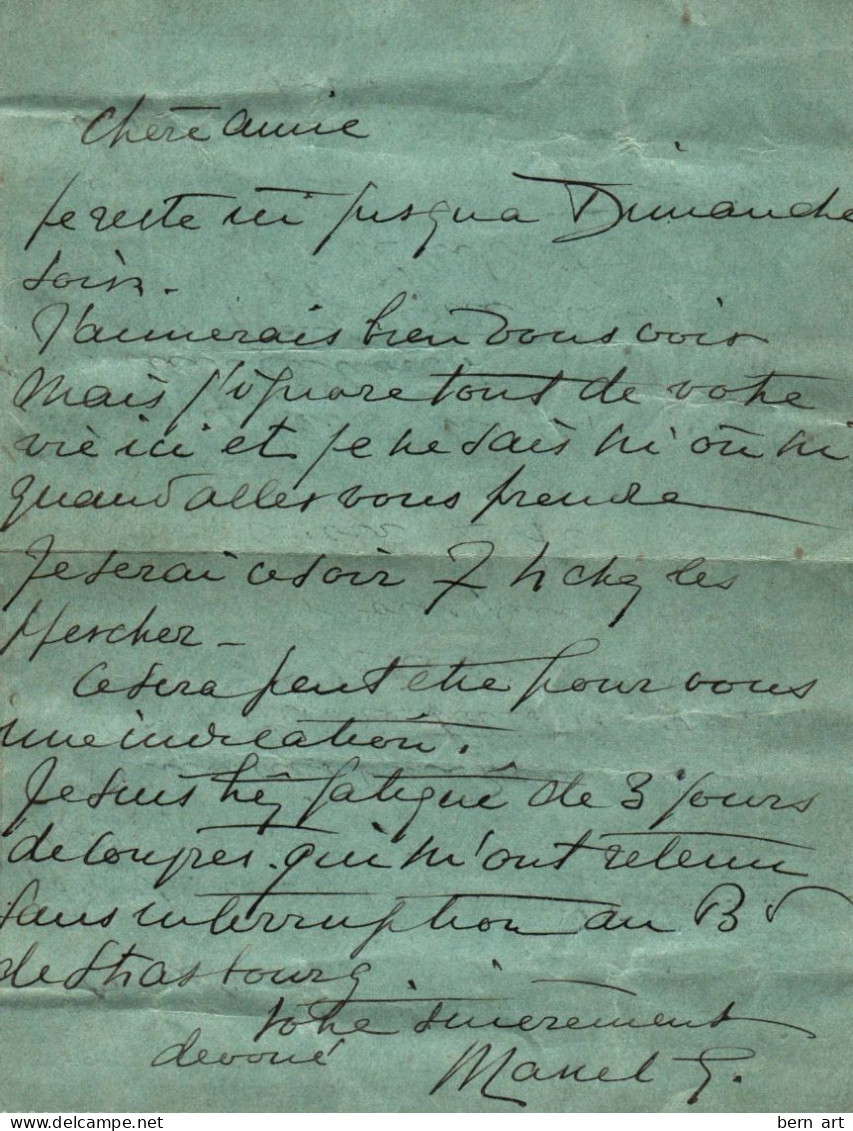 Chère amie
Je reste ici jusqua Dimanche
soir.
J'aimerais bien vous voir
mais j'ignore tout de votre
vie ici et je ne sais ni où ni
quand aller vous prendre
Je serai ce soir 7 h chez les
Hescher -
Ce sera peut etre pour vous
une indication.
Je suis très fatigué de 3 jours
de congrès. qui m'ont retenu
sans interruption au Bd
de Strasbourg.
Votre sincèrement
devoué
Manel G.
bern art